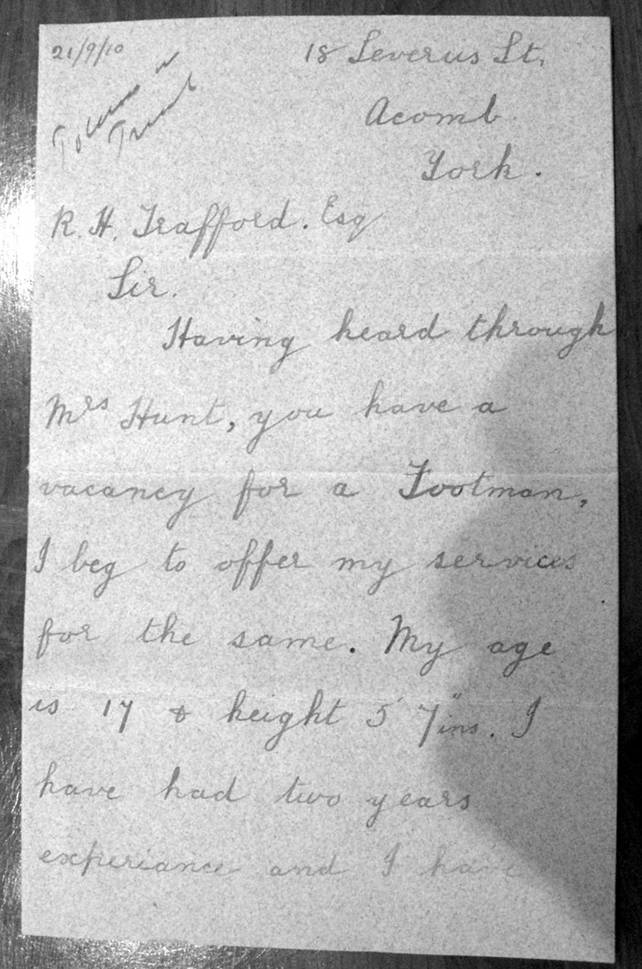 21/9/10
18 Severus St.
Acomb
York.
R. H. Trafford. Esq
Sir.
Having heard through
Mrs Hunt, you have a
vacancy for a Footman,
I beg to offer my services
for the same. My age
is 17 & height 5' 7"ins. I
have had two years
experiance and I have